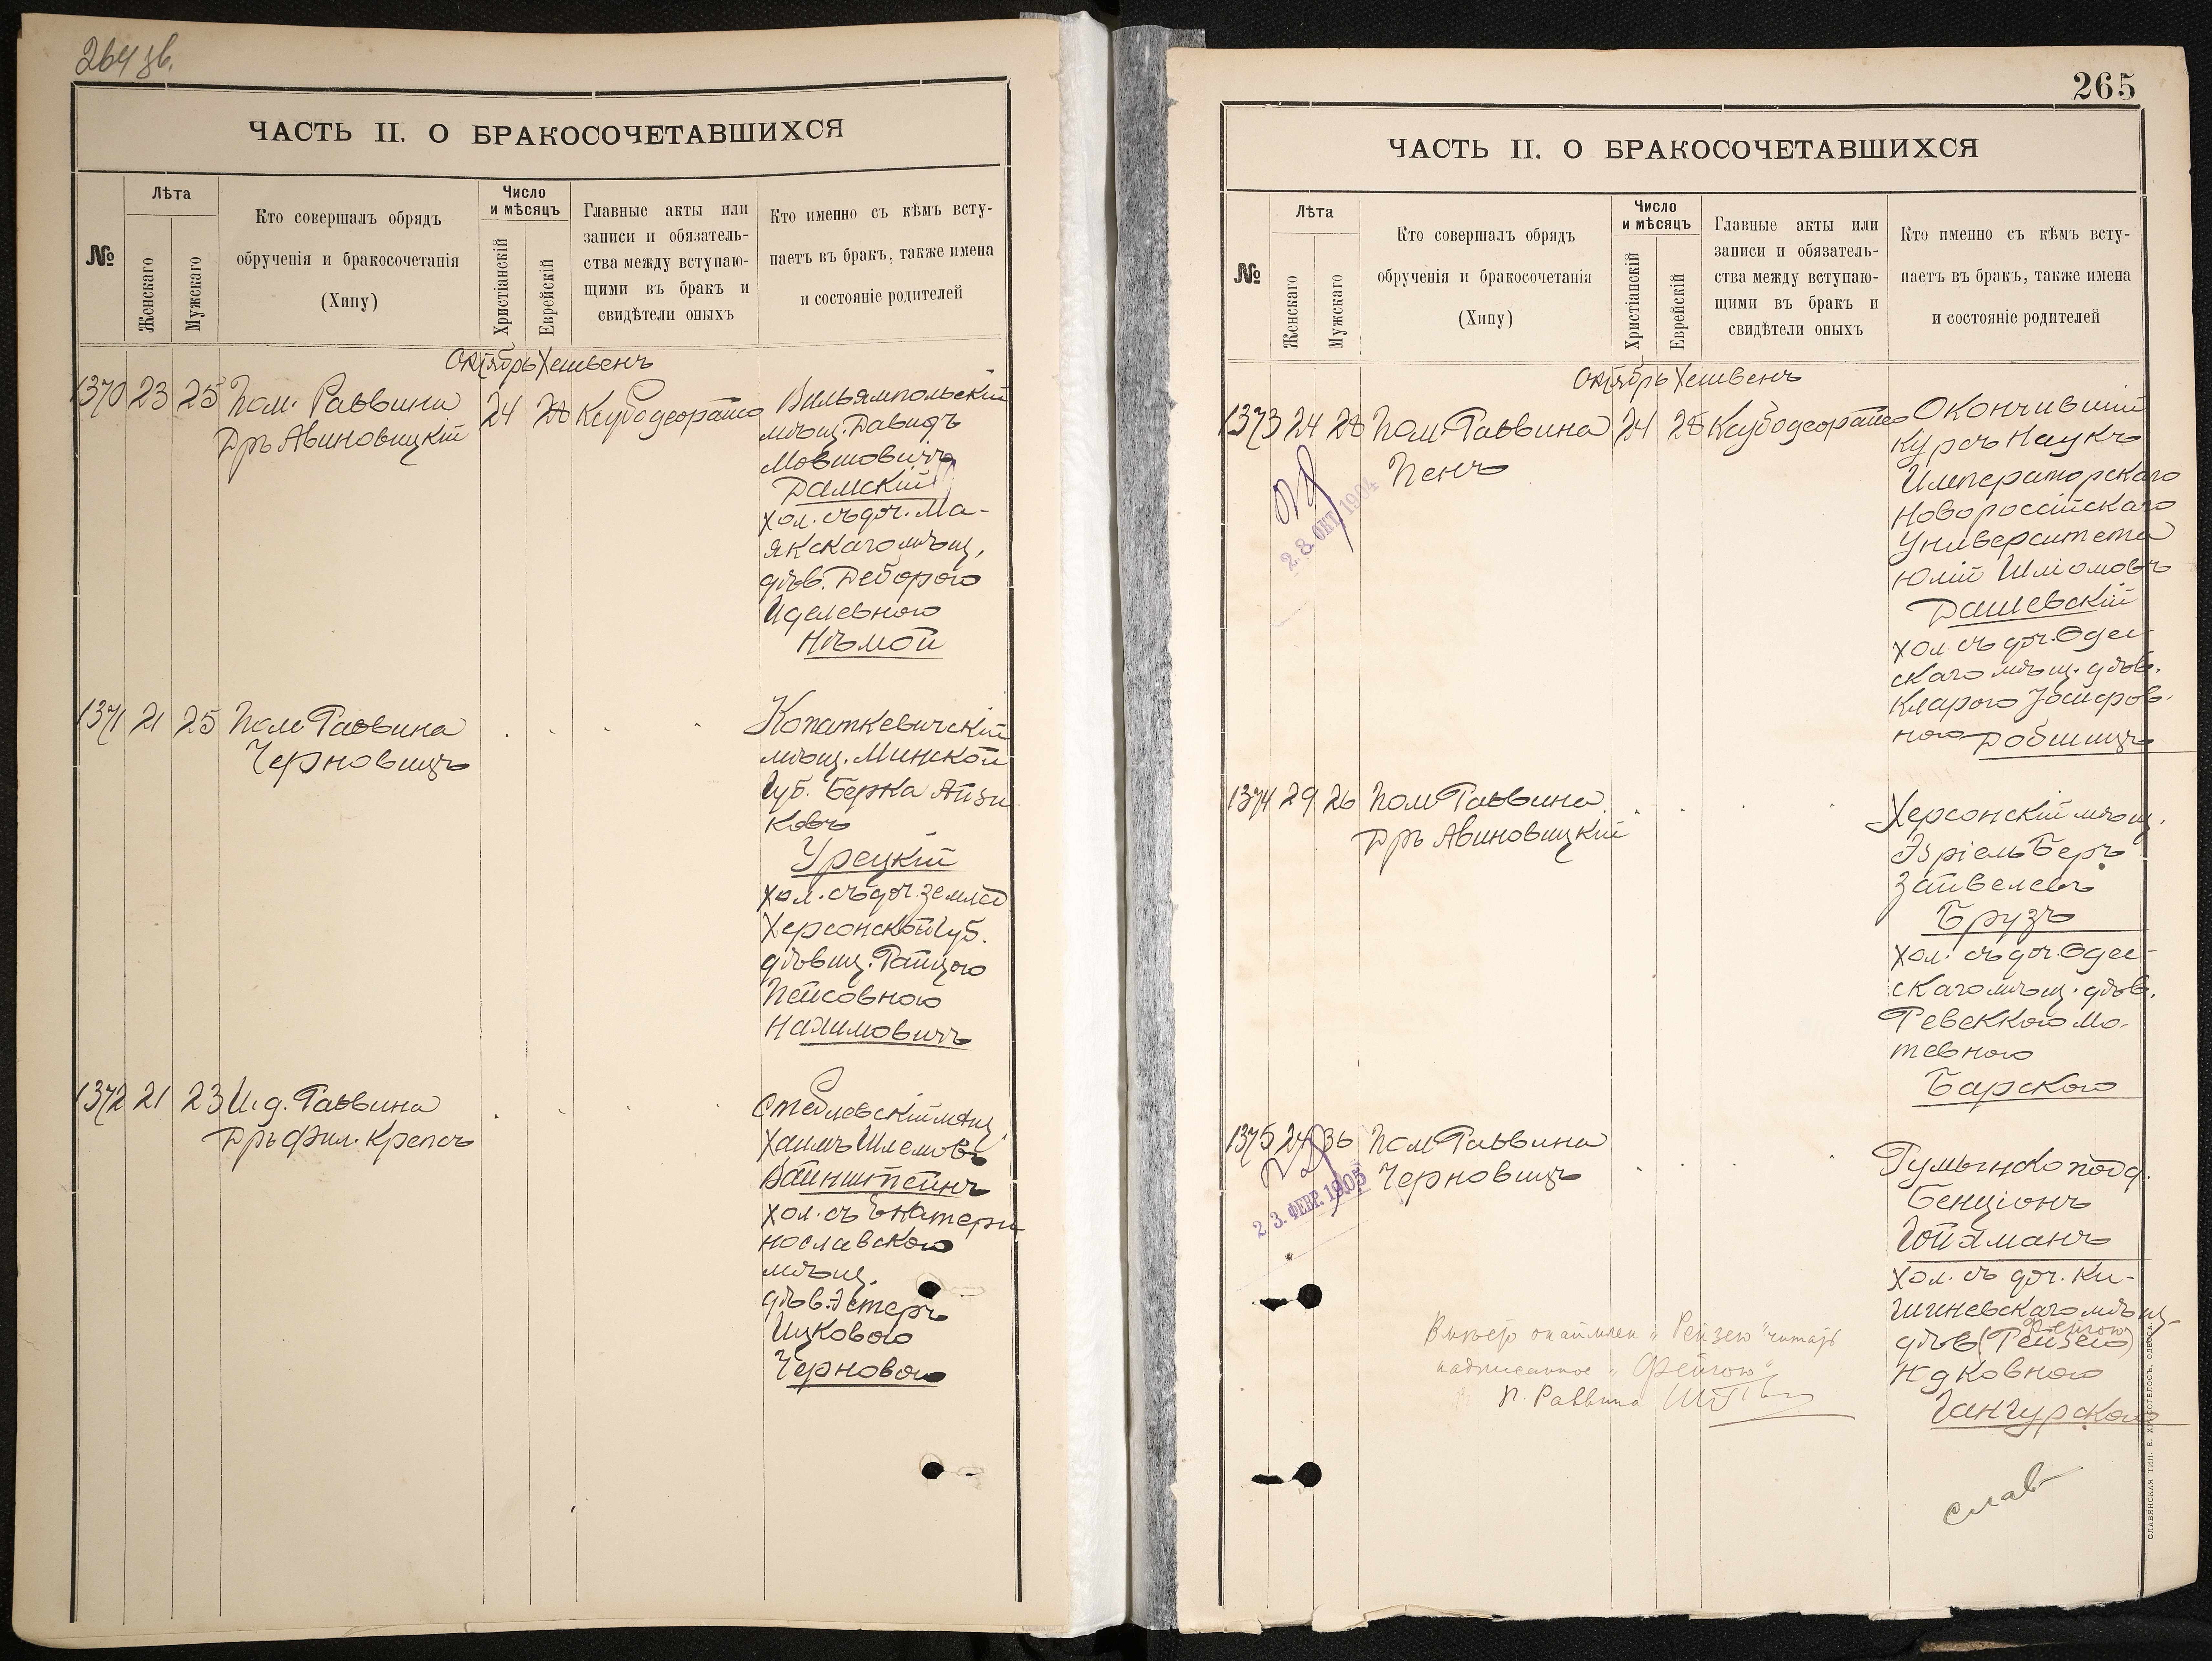 264 зв.
ЧАСТЬ II. О БРАКОСОЧЕТАВШИХСЯ
№
Лѣта
Женскаго
Мужскаго
Кто совершалъ обрядъ
обрученія и бракосочетанія
(Хипу)
Число
и мѣсяцъ
Христіанскій
Еврейскій
Главные акты или
записи и обязатель-
ства между вступаю-
щими въ бракъ и
свидѣтели оныхъ
Кто именно съ кѣмъ всту-
паетъ въ бракъ, также имена
и состояніе родителей
Октябрь Хешвенъ
1370 23 25 Пом. Раввина
Дръ Авиновицкій
24 28
Вильямпольскій
мѣщ. Давидъ
Мовшовичъ
Дамскій
хол. съ доч. Ма-
якскаго мѣщ,
дѣв. Деборою
Иделевною
Нѣмой
1371 21 25 Пом Раввина
Черновицъ
Копаткевичскій
мѣщ. Минской
губ. Берка Айзи
ковъ
Урецкій
хол. съ доч. землед
Херсонской губ.
дѣвиц. Райцою
Пейсовною
Нахимовичъ
1372 21 23 И. д. Раввина
Дръ Фил. Крепсъ
Стеблевскій мѣщ
Хаимъ Шлемовъ
Вайнштейнъ
хол. съ Екатери
нославскою
мѣщ.
дѣв. Эстеръ
Ицковою
Черновою
265
ЧАСТЬ II. О БРАКОСОЧЕТАВШИХСЯ
№
Лѣта
Женскаго
Мужскаго
Кто совершалъ обрядъ
обрученія и бракосочетанія
(Хипу)
Число
и мѣсяцъ
Христіанскій
Еврейскій
Главные акты или
записи и обязатель-
ства между вступаю-
щими въ бракъ и
свидѣтели оныхъ
Кто именно съ кѣмъ всту-
паетъ въ бракъ, также имена
и состояніе родителей
Октябрь Хешвенъ
1373 24 28 Пом. Раввина
Пенъ
24 28
28. ОКТ. 1904
Окончившій
курсъ Наукъ
Императорскаго
Новороссійскаго
Университета
Юлій Шліомовъ
Дашевскій
хол. съ доч. Одес-
скаго мѣщ. дѣв.
Кларою
ною Добшицъ
1374 29 26 Пом Раввина
Дръ Авиновицкій
Херсонскій мѣщ.
Эзріель Беръ
Зайвелевъ
Брузъ
хол. съ доч. Одес-
скаго мѣщ. дѣв.
Ревеккою Мо-
тевною
Барскою
1375 24 36 Пом Раввина
Черновицъ
23. ФЕВР. 1905
Румынско подд.
Бенціонъ
Гойхманъ
хол. съ доч. Ки-
шиневскаго мѣщ
Фейгою
дѣв (Рейзею)
Идковною
Гангурскою
Вмѣсто окаймлен „Рейзею" читать
надписанное „Фейгою"
П. Раввина
слав
СЛАВЯНСКАЯ ТИП. Е. ХРИСОГЕЛОСЪ, ОДЕССА.